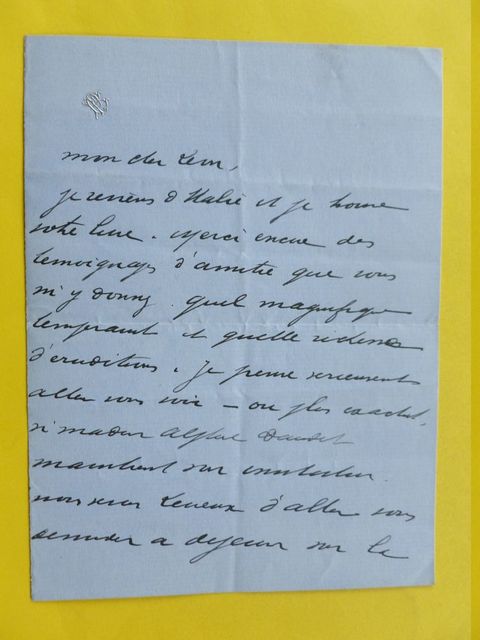 mon cher Léon,
je reviens d'Italie et je trouve
votre livre. Merci encore des
temoignages d'amitié que vous
m'y donnez. quel magnifique
temperament et quelle richesse
d'erudition. Je pense serieusement
aller vous voir — ou plus exact.
si madame Alphse Daudet
maintient son invitation.
nous serons heureux d'aller vous
demander a dejeuner sur la